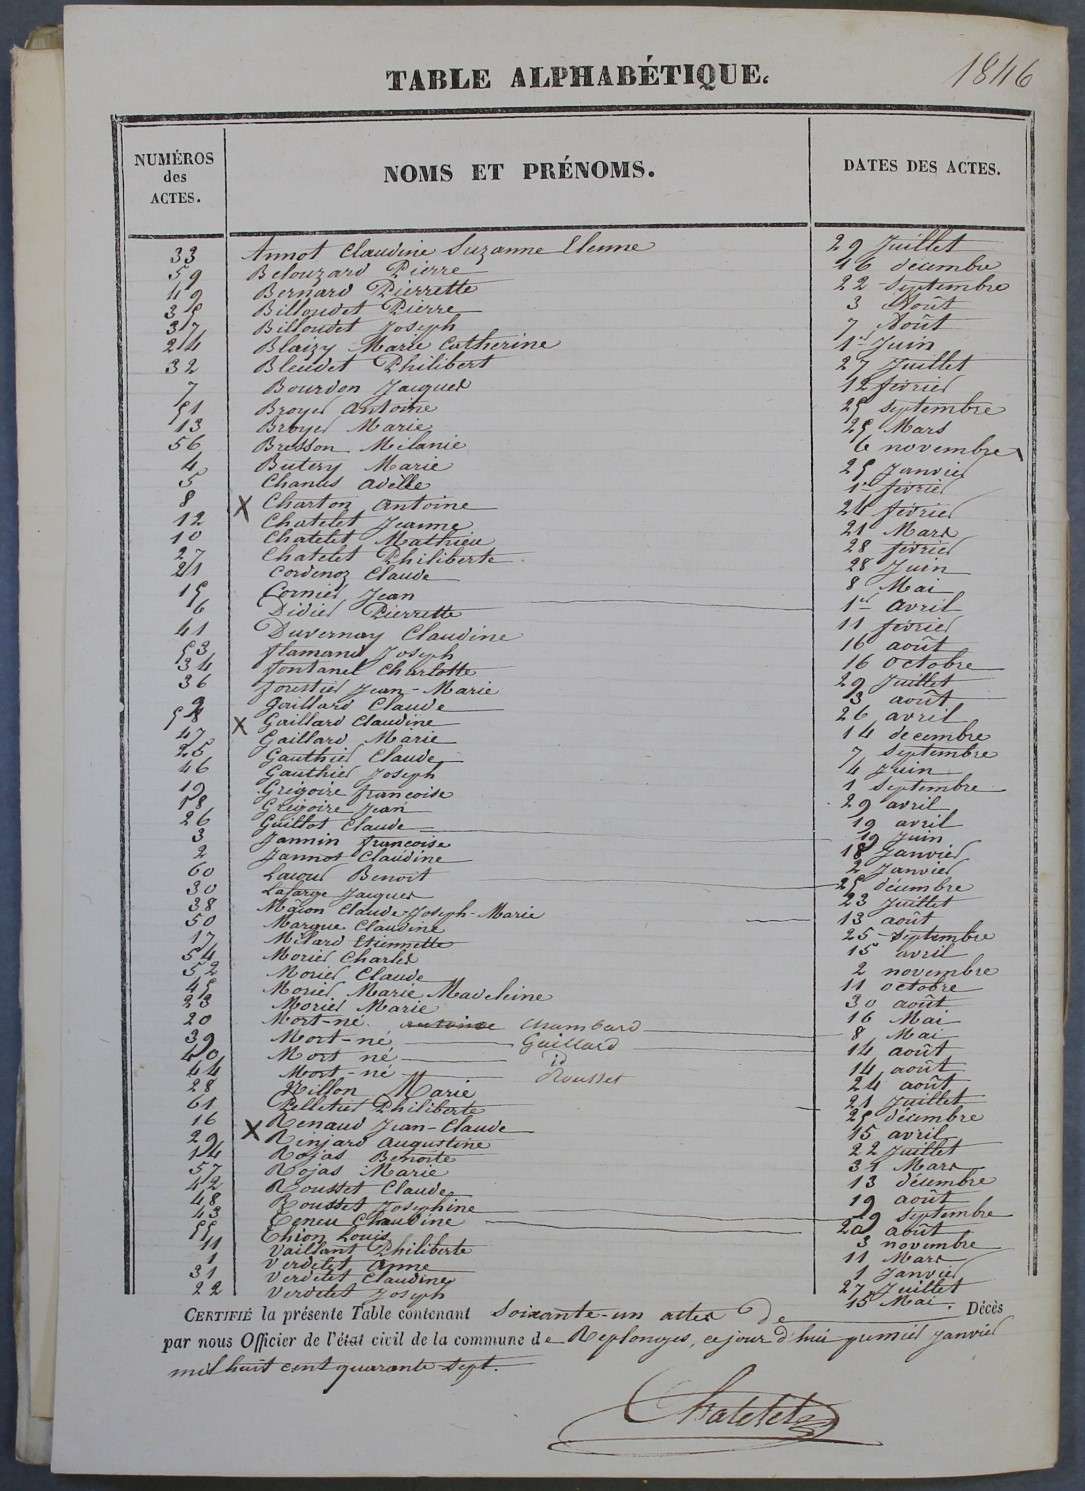 TABLE ALPHABÉTIQUE.
1846
NUMÉROS des ACTES.
NOMS ET PRÉNOMS.
DATES DES ACTES.
33 Annot Claudine Suzanne Etenne 29 Juillet
59 Belouzard Pierre 16 décembre
49 Bernard Pierrette 22 Septembre
35 Billoudet Pierre 3 Août
37 Billoudet Joseph 7 Août
24 Blaizy Marie Catherine 1er Juin
32 Bleudet Philibert 27 Juillet
7 Bourdon Jacques 12 février
51 Broyer Antoine 25 septembre
13 Broyer Marie 25 Mars
56 Bresson Mélanie 6 novembre
4 Butery Marie 25 Janvier
5 Chanus Adelle 1er février
8 X Charton Antoine 24 février
12 Chatelet Jeanne 21 Mars
10 Chatelet Mathieu 28 février
27 Chatelet Philiberte 28 Juin
21 Cordenoz Claude 8 Mai
15 Cornier Jean 1er avril
6 Didier Pierrette 11 février
41 Duvernay Claudine 16 août
53 flamand Joseph 16 octobre
34 fontanel Charlotte 29 Juillet
36 forestier Jean-Marie 3 août
9 Gaillard Claude 26 avril
58 X Gaillard Claudine 14 decembre
47 Gaillard Marie 7 Septembre
25 Gauthier Claude 4 Juin
46 Gauthier Joseph 1 septembre
19 Grégoire françoise 29 avril
18 Grégoire Jean 19 avril
26 Guillot Claude 19 Juin
3 Jannin françoise 18 Janvier
2 Jannot Claudine 2 Janvier
60 Lacour Benoit 25 décembre
30 Lafarge Jacques 23 Juillet
38 Macon Claude-Joseph-Marie 13 août
50 Marque Claudine 25 Septembre
17 Milard Etiennette 15 avril
54 Morier Charles 2 novembre
52 Morier Claude 11 octobre
45 Morier Marie Madeleine 30 août
23 Morier Marie 16 Mai
20 Mort-né Chambard 8 Mai
39 Mort-né Gaillard 14 août
40 Mort né id 14 août
44 Mort-né Rousset 24 août
28 Nillon Marie 21 Juillet
61 Pelletier Philiberte 25 décembre
16 Renaud Jean-Claude 15 avril
29 X Renjard Augustine 22 Juillet
14 Rojas Benoite 31 Mars
57 Rojas Marie 13 décembre
42 Rousset Claude 19 août
48 Rousset Josephine 9 septembre
43 Teneu Claudine 20 août
55 Thion Louis 3 novembre
11 Vaillant Philiberte 11 Mars
1 Verdelet Anne 1 Janvier
31 Verdelet Claudine 27 Juillet
22 Verdelet Joseph 15 Mai
CERTIFIÉ la présente Table contenant Soixante-un actes de Décès
par nous Officier de l'état civil de la commune de Replonges, ce jour d'hui premier Janvier
mil huit cent quarante sept.
Chatelet